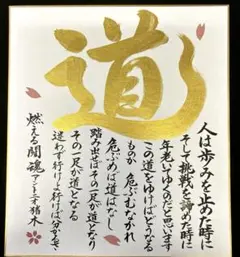 道
人は歩みを止めた時に
そして挑戦を諦めた時に
年老いてゆくのだと思います
この道をゆけばどうなる
ものか 危ぶむなかれ
危ぶめば道はなし
踏み出せばその一足が道となり
その一足が道となる
迷わず行けよ 行けば分かるさ
燃える闘魂 アントニオ猪木